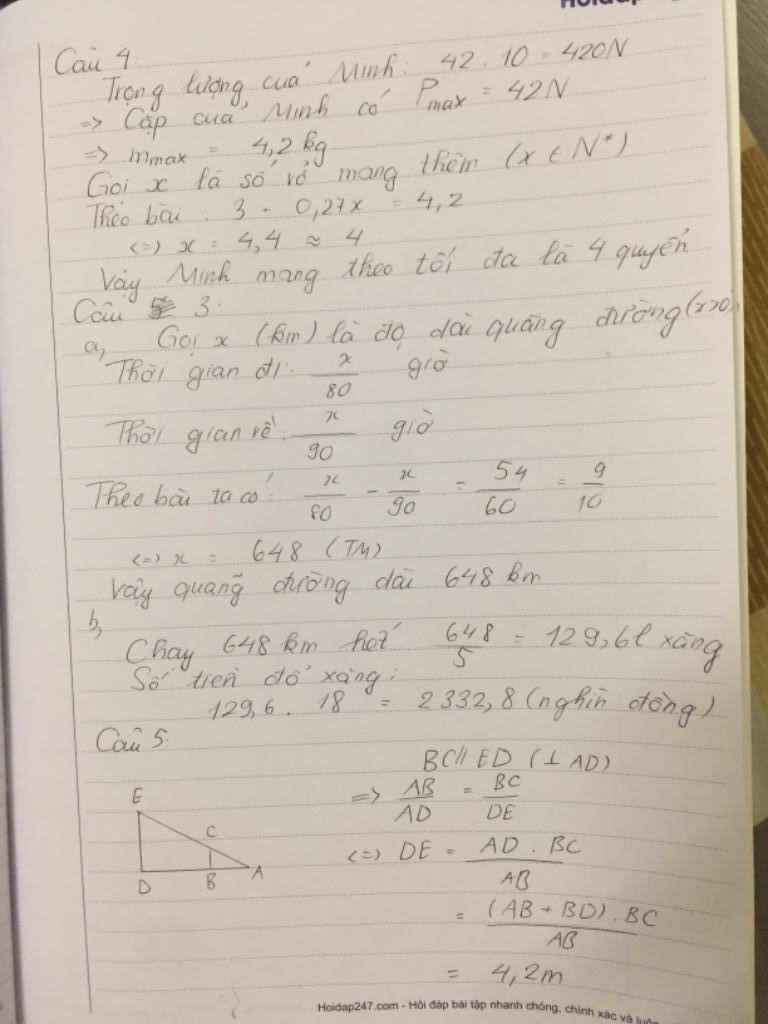 Câu 4
Trọng lượng của Minh: 42 . 10 = 420N
=> Cặp của Minh có Pmax = 42N
=> mmax = 4,2 kg
Gọi x là số vở mang thêm (x ∈ N*)
Theo bài : 3 + 0,27x = 4,2
<=> x = 4,4 ≈ 4
Vậy Minh mang theo tối đa là 4 quyển
Câu 3:
a, Gọi x (km) là độ dài quãng đường (x>0)
Thời gian đi: x/80 giờ
Thời gian về: x/90 giờ
Theo bài ta có: x/80 - x/90 = 54/60 = 9/10
<=> x = 648 (TM)
Vậy quãng đường dài 648 km
b,
Chạy 648 km hết 648/5 = 129,6l xăng
Số tiền đổ xăng:
129,6 . 18 = 2332,8 (nghìn đồng)
Câu 5:
BC // ED (⊥ AD)
=> AB/AD = BC/DE
<=> DE = AD . BC/AB
= (AB + BD) . BC/AB
= 4,2m
E
C
D B A
Hoidap247.com - Hỏi đáp bài tập nhanh chóng, chính xác và luôn